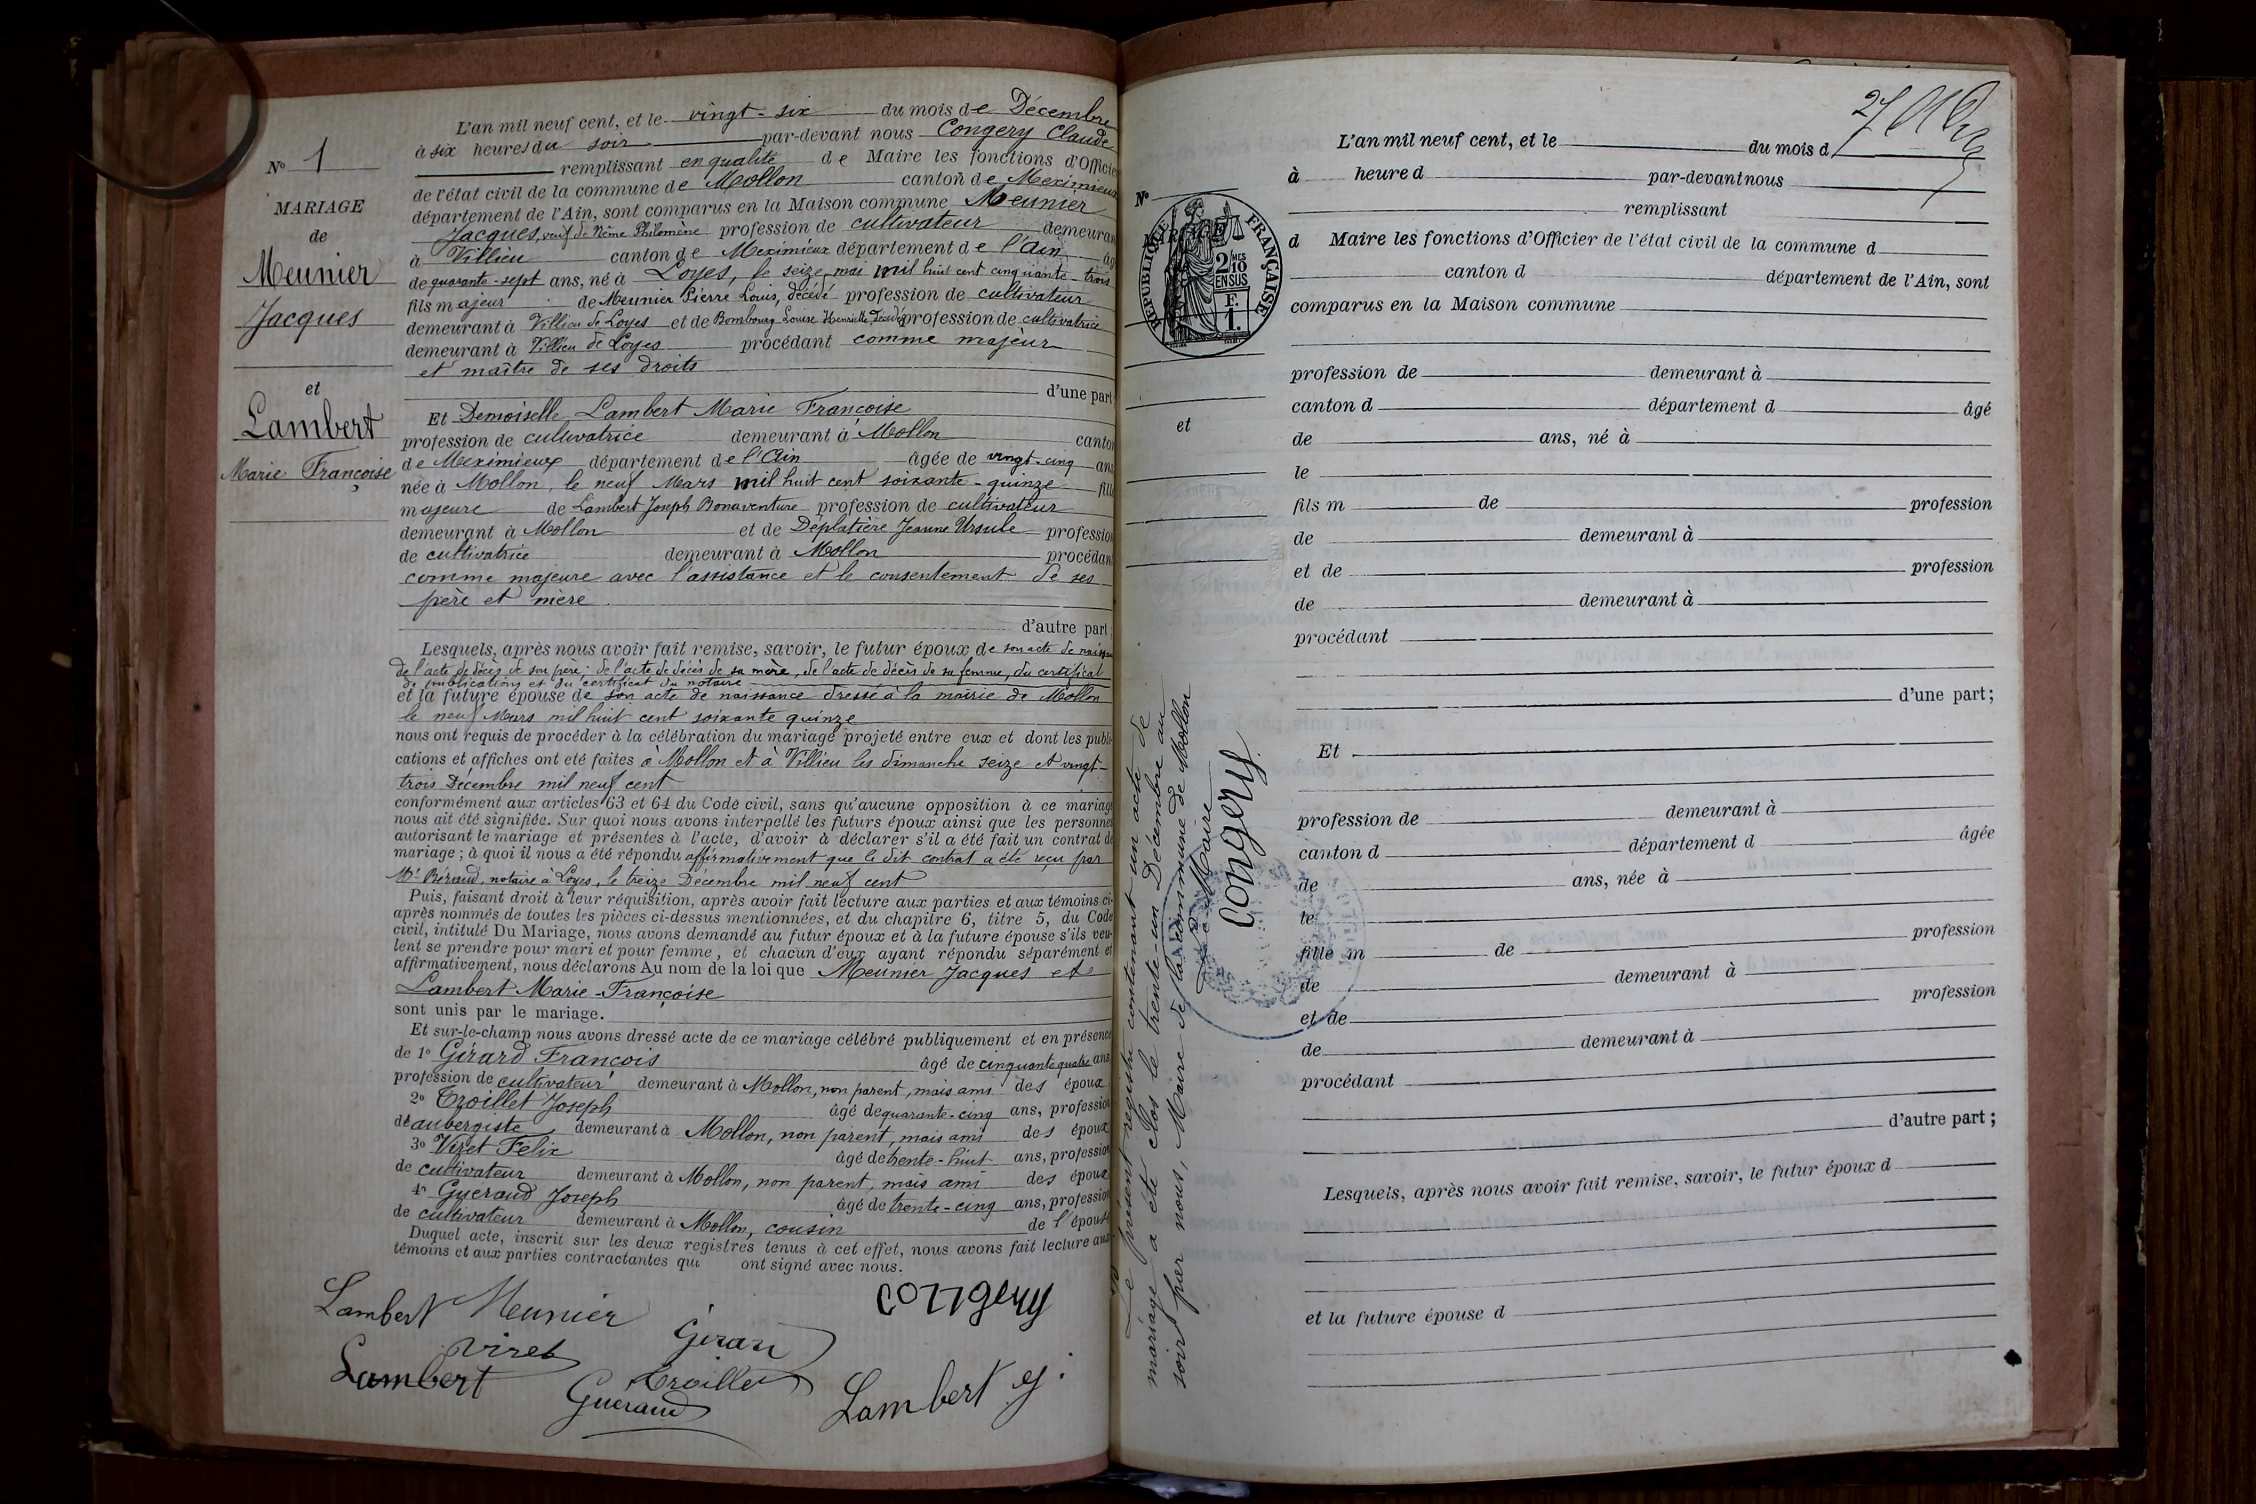 L'an mil neuf cent, et le vingt-six du mois de Décembre
à six heures du soir par-devant nous Congery Claude
remplissant en qualité de Maire les fonctions d'Officier
de l'état civil de la commune de Mollon canton de Meximieux
département de l'Ain, sont comparus en la Maison commune Meunier
Jacques, veuf de Nême Philomène profession de cultivateur demeurant
à Villieu canton de Meximieux département de l'Ain âgé
de quarante-sept ans, né à Loyes, le seize mai mil huit cent cinquante-trois
fils majeur de Meunier Pierre Louis, décédé profession de cultivateur
demeurant à Villieu de Loyes et de Bombourg Louise Henriette Décédée profession de cultivatrice
demeurant à Villieu de Loyes procédant comme majeur
et maître de ses droits
d'une part
Et Demoiselle Lambert Marie Françoise
profession de cultivatrice demeurant à Mollon canton
de Meximieux département de l'Ain âgée de vingt-cinq ans
née à Mollon, le neuf Mars mil huit cent soixante-quinze fille
majeure de Lambert Joseph Bonaventure profession de cultivateur
demeurant à Mollon et de Déplatière Jeanne Ursule profession
de cultivatrice demeurant à Mollon procédant
comme majeure avec l'assistance et le consentement de ses
père et mère
d'autre part;
Lesquels, après nous avoir fait remise, savoir, le futur époux de son acte de naissance
de l'acte de décès de son père; de l'acte de décès de sa mère, de l'acte de décès de sa femme, du certificat
de publications et du certificat du notaire
et la future épouse de son acte de naissance dressé à la mairie de Mollon
le neuf Mars mil huit cent soixante quinze
nous ont requis de procéder à la célébration du mariage projeté entre eux et dont les publi-
cations et affiches ont été faites à Mollon et à Villieu les dimanche seize et vingt-
trois Décembre mil neuf cent
conformément aux articles 63 et 64 du Code civil, sans qu'aucune opposition à ce mariage
nous ait été signifiée. Sur quoi nous avons interpellé les futurs époux ainsi que les personnes
autorisant le mariage et présentes à l'acte, d'avoir à déclarer s'il a été fait un contrat de
mariage; à quoi il nous a été répondu affirmativement que le dit contrat a été reçu par
Mt Béraud, notaire à Loyes, le treize Décembre mil neuf cent
Puis, faisant droit à leur réquisition, après avoir fait lecture aux parties et aux témoins ci-
après nommés de toutes les pièces ci-dessus mentionnées, et du chapitre 6, titre 5, du Code
civil, intitulé Du Mariage, nous avons demandé au futur époux et à la future épouse s'ils veu-
lent se prendre pour mari et pour femme, et chacun d'eux ayant répondu séparément et
affirmativement, nous déclarons Au nom de la loi que Meunier Jacques et
Lambert Marie-Françoise
sont unis par le mariage.
Et sur-le-champ nous avons dressé acte de ce mariage célébré publiquement et en présence
de 1° Girard François âgé de cinquante quatre ans
profession de cultivateur demeurant à Mollon, non parent, mais ami des époux
2° Troillet Joseph âgé de quarante-cinq ans, profession
de aubergiste demeurant à Mollon, non parent, mais ami des époux
3° Viret Félix âgé de trente-huit ans, profession
de cultivateur demeurant à Mollon, non parent, mais ami des époux
4° Gueraud Joseph âgé de trente-cinq ans, profession
de cultivateur demeurant à Mollon, cousin de l'épouse
Duquel acte, inscrit sur les deux registres tenus à cet effet, nous avons fait lecture aux
témoins et aux parties contractantes qui ont signé avec nous.
Lambert Meunier Congery
Viret Girard
Lambert Troillet
Gueraud Lambert J.
N° 1
MARIAGE
de
Meunier
Jacques
et
Lambert
Marie Françoise
N°
RÉPUBLIQUE FRANÇAISE
2/10 MES
EN SUS
F.
1.
et
Le présent registre contenant un acte de
mariage a été clos le trente-un Décembre au
soir par nous, Maire de la commune de Mollon
Le Maire
Congery
27
L'an mil neuf cent, et le du mois d
à heure d par-devant nous
remplissant
d Maire les fonctions d'Officier de l'état civil de la commune d
canton d département de l'Ain, sont
comparus en la Maison commune
profession de demeurant à
canton d département d âgé
de ans, né à
le
fils m de profession
de demeurant à
et de profession
de demeurant à
procédant
d'une part;
Et
profession de demeurant à
canton d département d âgée
de ans, née à
le
fille m de profession
de demeurant à
et de profession
de demeurant à
procédant
d'autre part;
Lesquels, après nous avoir fait remise, savoir, le futur époux d
et la future épouse d